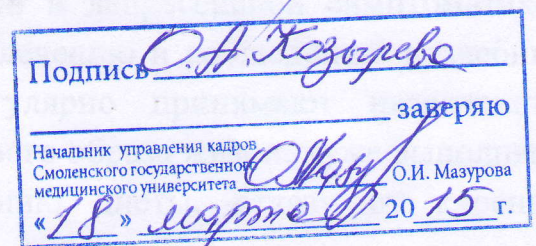 Подпись О.А. Козырева
заверяю
Начальник управления кадров
Смоленского государственного
медицинского университета О.И. Мазурова
«18» марта 2015 г.